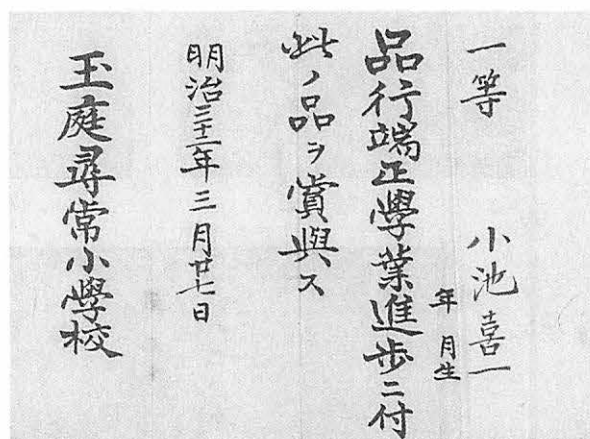 一等 小池喜一
年 月生
品行端正學業進歩ニ付
此ノ品ヲ賞與ス
明治三十三年三月廿七日
玉庭尋常小學校